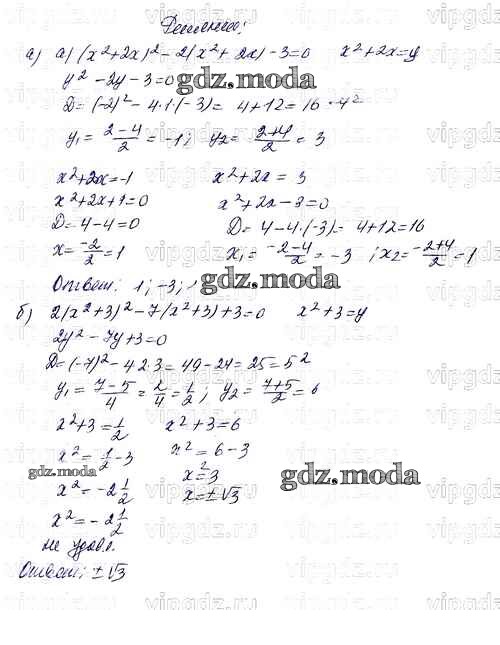 Решение:
а) а) (x²+2x)²-2(x²+2x)-3=0 x²+2x=y
y²-2y-3=0
gdz.moda
D=(-2)²-4·1·(-3)=4+12=16=4²
y₁=(2-4)/2=-1; y₂=(2+4)/2=3
x²+2x=-1 x²+2x=3
x²+2x+1=0 x²+2x-3=0
D=4-4=0 D=4-4·(-3)=4+12=16
x=-2/2=1 x₁=(-2-4)/2=-3; x₂=(-2+4)/2=1
Ответ: 1; -3;
gdz.moda
б) 2(x²+3)²-7(x²+3)+3=0 x²+3=y
2y²-7y+3=0
D=(-7)²-4·2·3=49-24=25=5²
y₁=(7-5)/4=2/4=1/2; y₂=(7+5)/2=6
x²+3=1/2 x²+3=6
x²=1/2-3 x²=6-3
gdz.moda
gdz.moda
x²=-2 1/2 x²=3
x²=-2 1/2 x=±√3
не удов.
Ответ: ±√3
vipgdz.ru